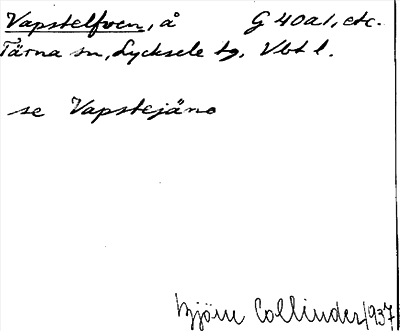 Vapstelfven, å G 40 a 1, etc.
Tärna sn, Lycksele tg, Vbt l.
se Vapstejäno
Björn Collinder 1937